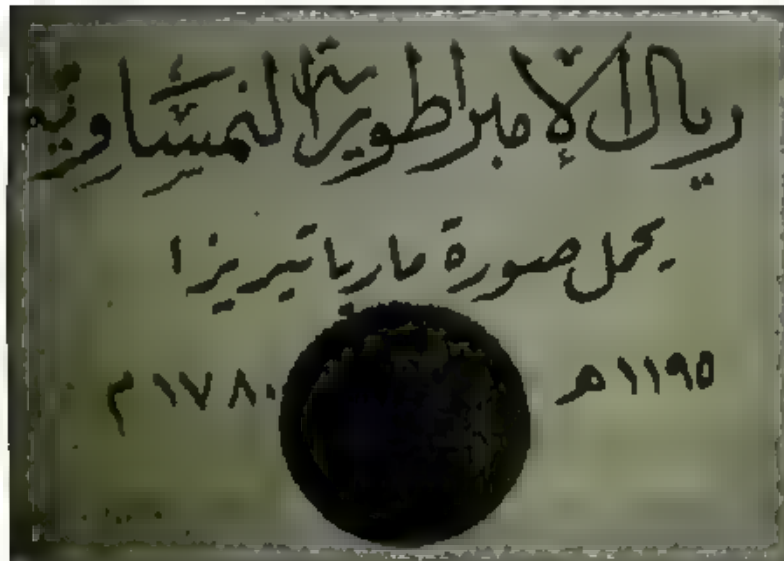 ريال الإمبراطورية النمساوية
يحمل صورة ماريا تيريزا
١١٩٥ هـ ١٧٨٠ م